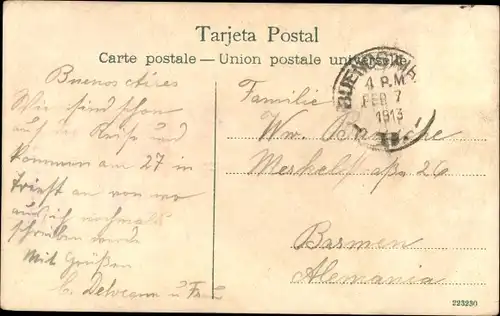 Tarjeta Postal
Carte postale — Union postale universelle
BUENOS AIRES
4 P.M
FEB 7
1913
Buenos Aires
Wir sind schon
auf der Reise und
kommen am 27 in
Triest an von wo
aus ich nochmals
schreiben werde
Mit Grüßen
u Frau
Familie
Wm.
Merkelstraße 26
Barmen
Alemania
223230